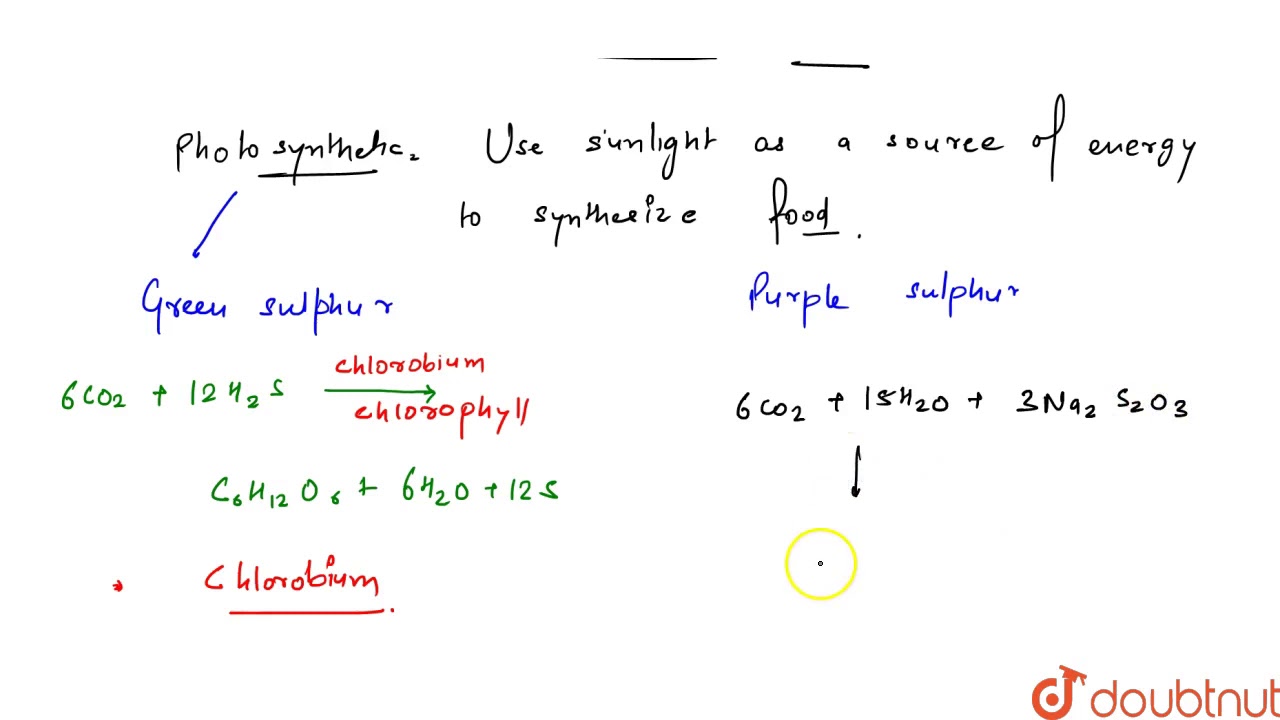 Photosynthetic. Use sunlight as a source of energy
to synthesize food.
Green sulphur
Purple sulphur
6CO2 + 12H2S chlorobium chlorophyll
C6H12O6 + 6H2O + 12S
6CO2 + 15H2O + 3Na2S2O3
Chlorobium.
doubtnut